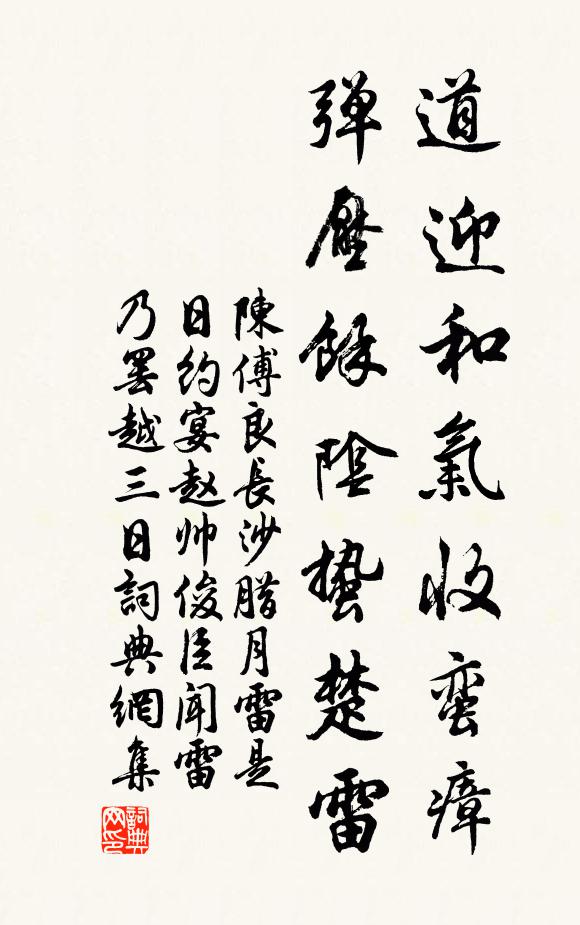 道迎和氣收蛮瘴
弹壓餘陰蟄楚雷
陳傅良長沙腊月雷是
日約宴赵帅俊臣闻雷
乃罢越三日詞典網集
詞典
网印